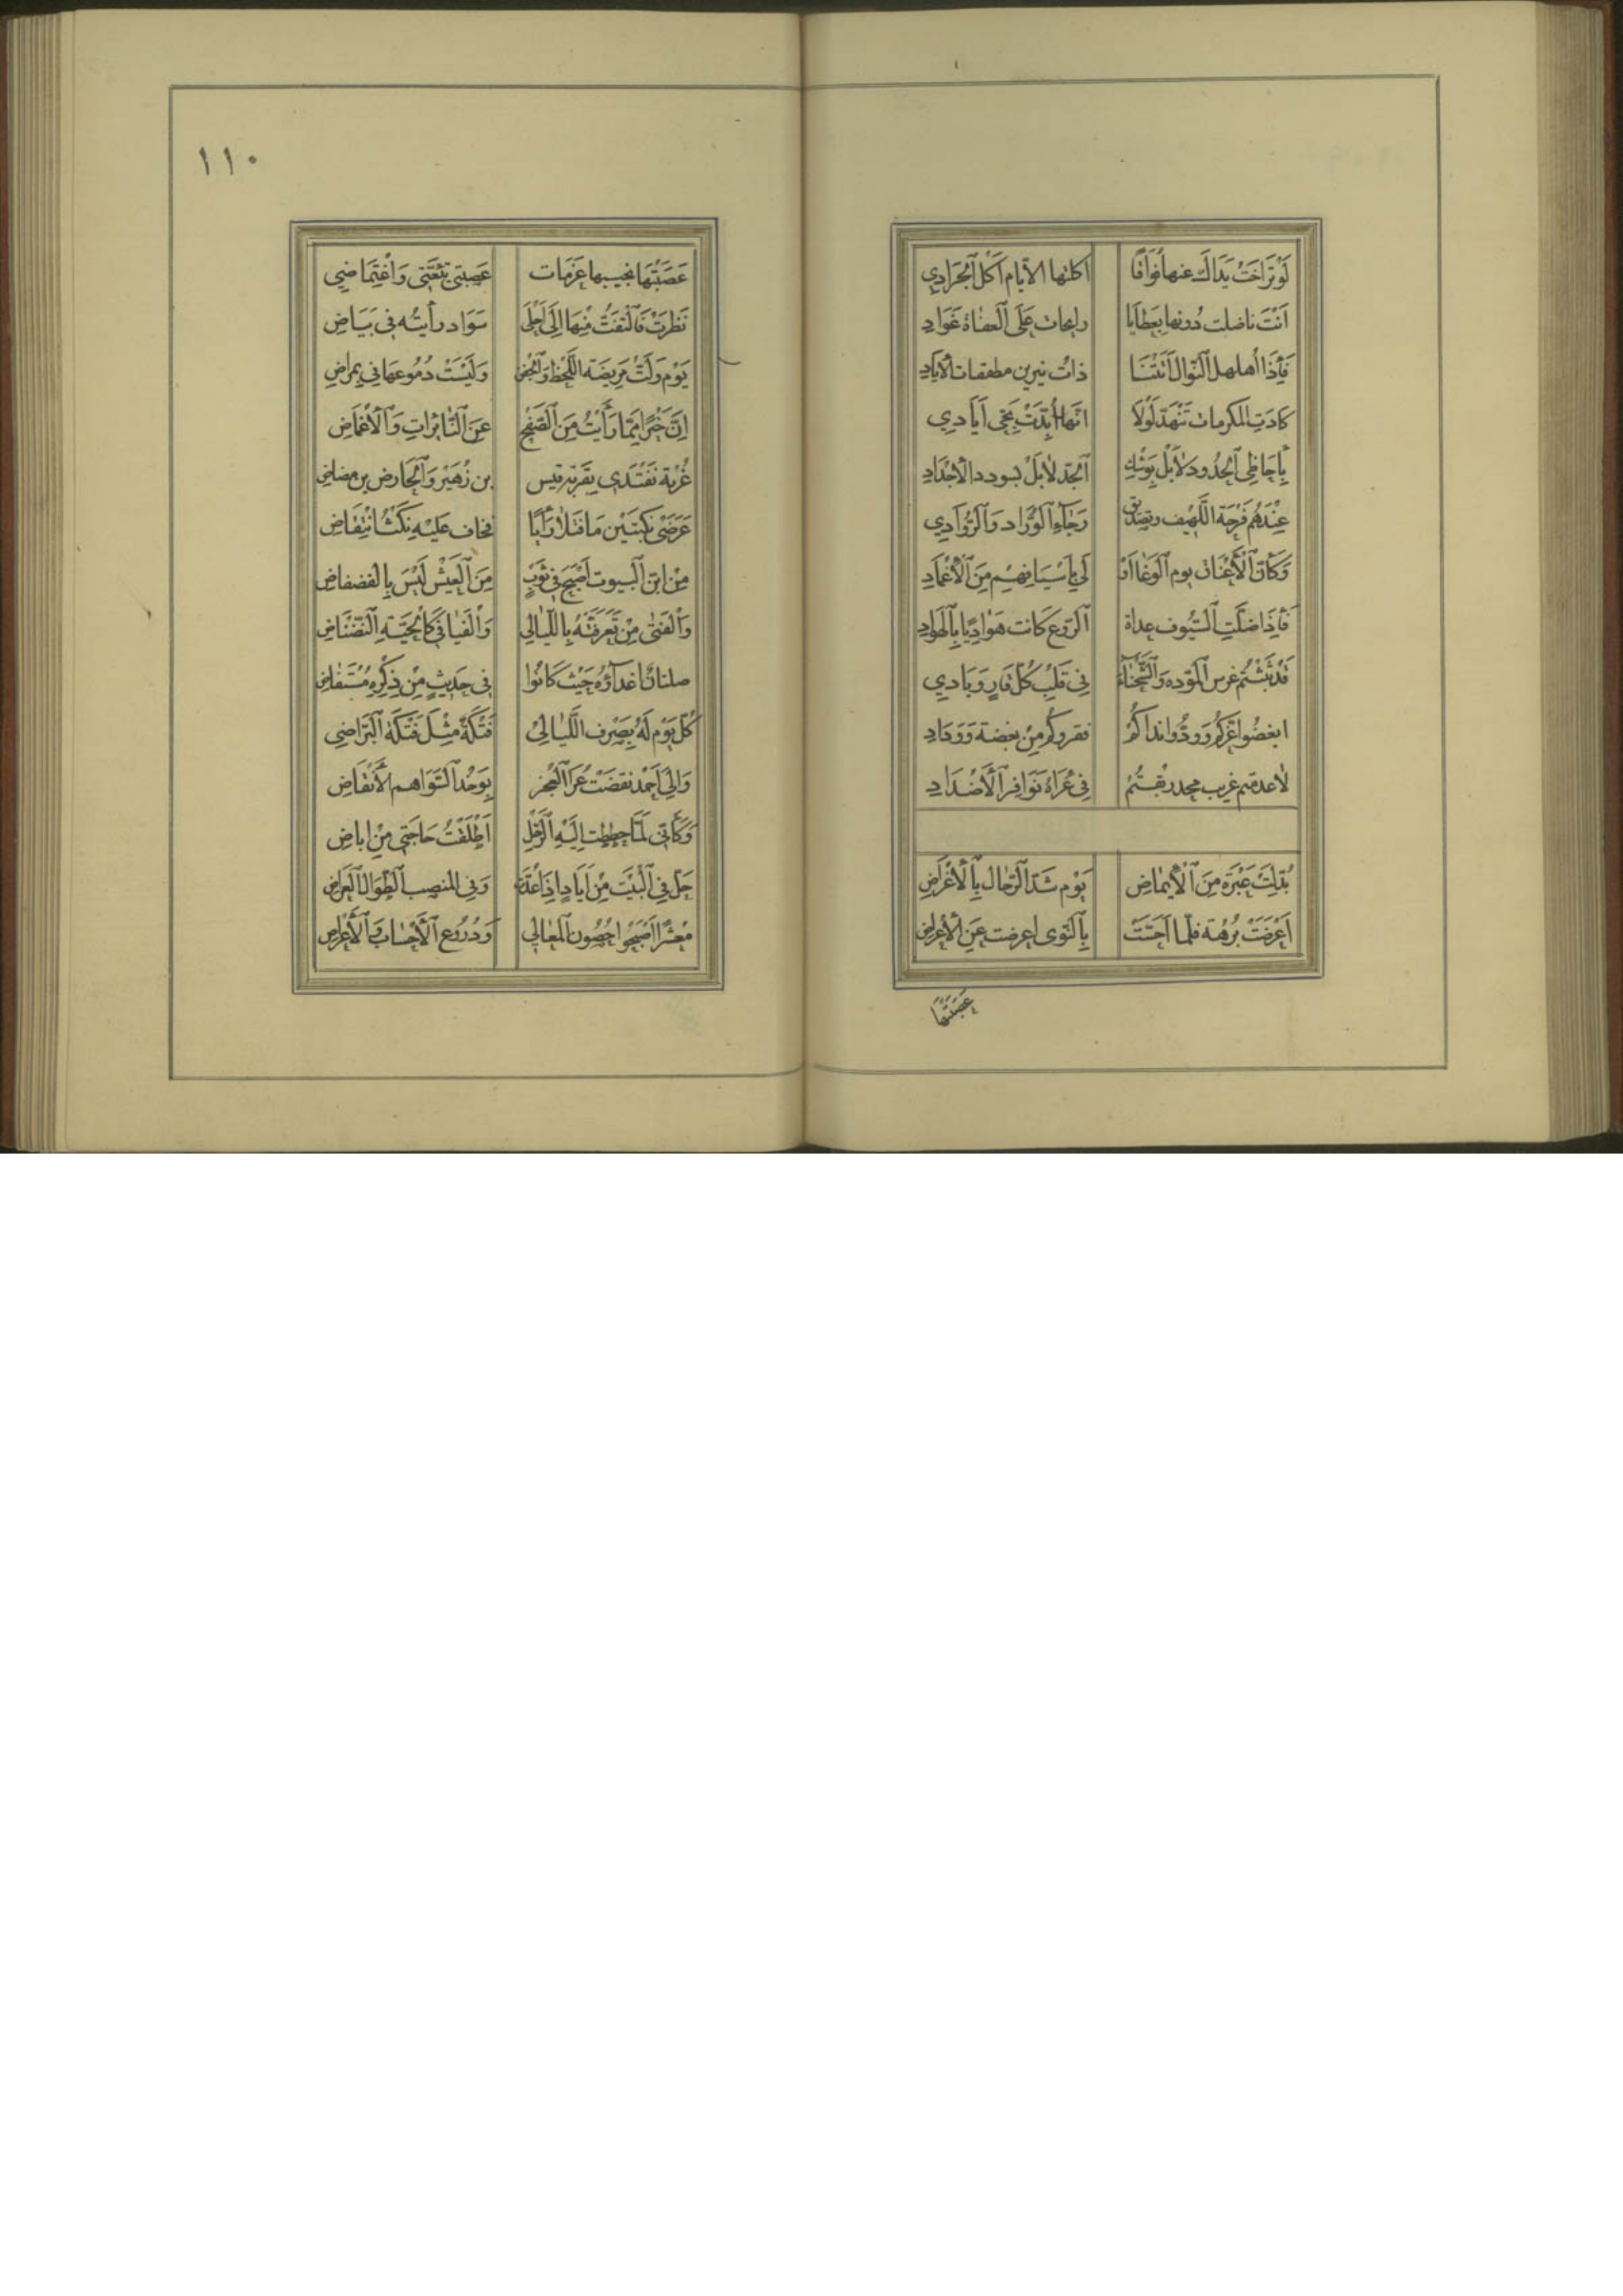 لَوْتَرَاخَتْ يَدَاكَ عنها فُوَاقًا اكلتها الاَيّام اَكْلَ اَلْجَرَادِي
اَنْتَ ناضلت دُونها بِعَطاَيا رايحات عَلَى اَلْعفاة غَوَادِ
فَاِذَا هلهل اَلنّوَال اَتَتْنَا ذاتُ نيرين مطبقات الاَيَادِ
كَادَتِ المكرمات تَنْهَدّ لَوْلاَ انّها اُيِّدَتْ بحَى اَيَادِي
عِنْدَهُم فَرْجَة اللَّهِيف وتصديق رَجَاءِ اَلوُرَّاد وَاَلرُّوَادِي
وَكَاَنّ اَلْاَعْنَاق يوم اَلْوَغَا اَوْ لى بِاَسْيَافِهِم مِنَ اَلْاَغْمَادِ
فَاِذَا ضَلَّتِ اَلسُّيُوف غداة اَلرَّوع كَانت هَوَادِيًا بِاَلْهَوادِ
قَدْ بَثَثْتُم غرس اَلْمَوَدّه وَاَلشَّحْنَاءَ فِى قَلْبِ كُلّ قَارٍ وَبَادِي
ابغضُوا عِزّكُم وَوَدُّوا نداكُمْ فقروكُم مِنْ بغضة وَوِدَادِ
لاَعدمتم غريب مجد ربقتُمْ فِى عُرَاهُ نَوَافِرَ اَلْاَضْدَادِ
بُدِّلَتْ عَبْرَة مِنَ اَلْاِيمَاضِ يَوْم شَدّ اَلرّحَال بِاَلْاَغْرَاضِ
اَعْرَضَتْ بُرْهَة فلمّا اَحَسَّتْ بِاَلنّوى اعرضت عَنِ الْاِعْراض
عَصَبَتْهَا
١١٠
عَصَبَتْهَا نحيبها عَزَمَات عَصبتنِى بِتَعَنّتى وَاغْتِمَاضِي
نَظَرَتْ فَالْتفَتُّ مِنْهَا اِلَى اَحْلَى سَوَاد رأيتُه فى بَيَاضِ
يَوْم وَلَّتْ مَرِيضَة اللَّحظ وَاَلْجفن وَلَيْسَتْ دُمُوعهَا فى بِمِراضِ
اِنَّ خَيْرًا مِمّا رَأَيْتُ مِنَ اَلصَّفْحِ عَنِ اَلنّائِرَاتِ وَاَلْاِغْمَاضِ
غُرْبَة تَقْتَدى بِغُرْبَة قيس بن زُهَيْر وَاَلْحَارِض بن مضاض
غَرَضَى نَكبَتَيْن مَا فتلا رَأْيًا فخاف عَلَيْه نَكْثَ انْتِقَاضِ
مِنْ ابن اَلْبيوت اَصْبَحَ فى ثَوْبٍ مِنَ اَلْعَيْش لَيْسَ بِالفضفاضِ
وَاَلْفتَى مَنْ تَعَرّقَتْهُ بِاللّيَالِي وَاَلْفَيافى كَاَلْحَيّة اَلنّضْنَاضِ
صلتان اَعْدَاؤُهُ حَيْث كَانُوا فى حَدِيثٍ مِنْ ذِكْرِه مُسْتَفاض
كُلّ يَوْم لَهُ بِصَرْف اَللّيَالِى فَتْكَةً مِثْل فَتْكَة اَلْبَرّاضِي
وَاِلَى اَحْمَد نقضت عُرَا اَلْعَجْز بِوَخْد اَلسّوَاهم اَلْاَنْقَاضِ
وَكَاَنّى لَمّا حططت اِلَيْه اَلرّحْلِ اَطْلَقْتُ حَاجَتى مِنْ اباضِ
حَلّ فى اَلْبَيْت مِنْ اَيَادٍ اِذَا عُدّت وَفى المنصب اَلطِّوَالِ اَلْعِراضِ
مَعْشَرًا اَصْبَحُوا حُصُون اَلْمَعَالِي وَدُرُوع اَلْاَحْسَاب وَاَلْاَعْراضِ